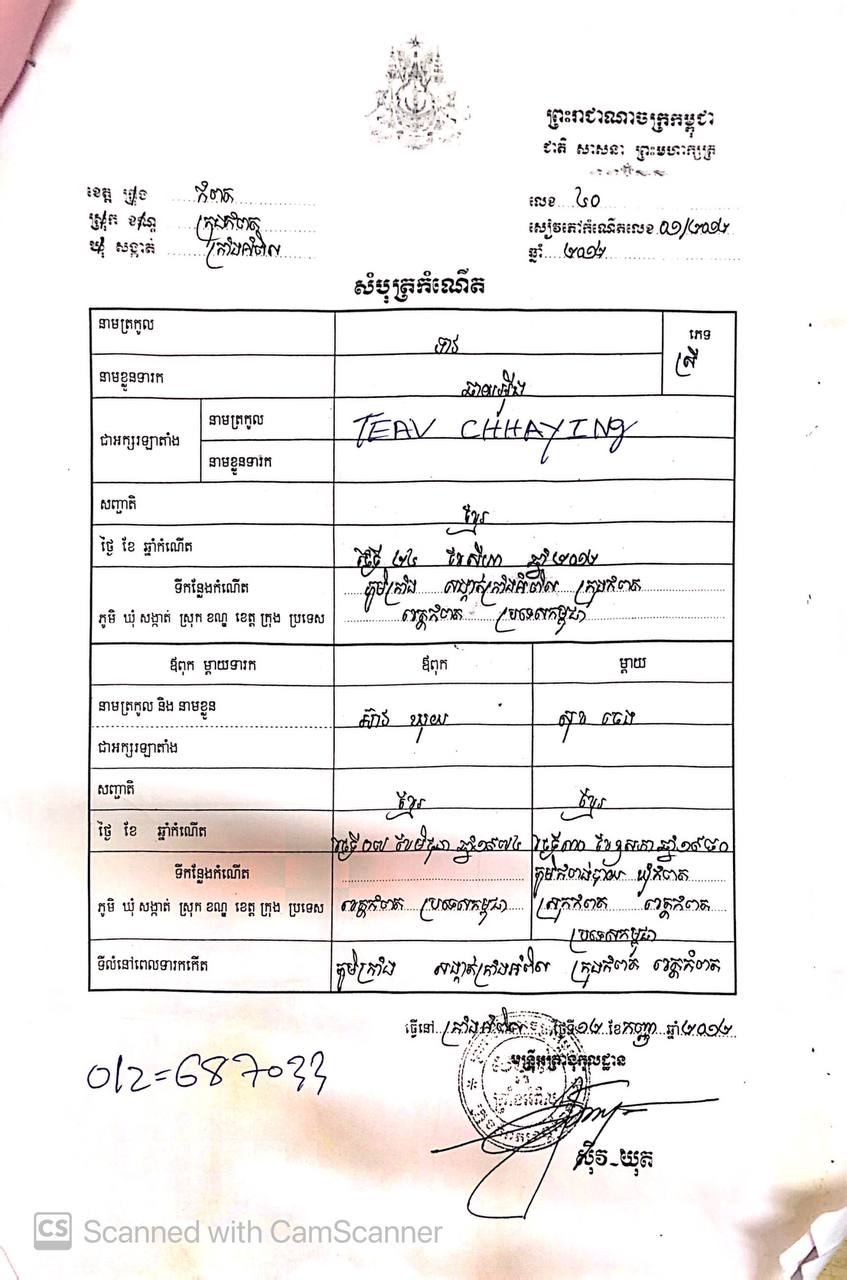 ព្រះរាជាណាចក្រកម្ពុជា
ជាតិ សាសនា ព្រះមហាក្សត្រ
ខេត្ត ក្រុង កំពត
ស្រុក ខណ្ឌ ក្រុងកំពត
ឃុំ សង្កាត់ ក្រាំងអំពិល
លេខ ៤០
សៀវភៅកំណើតលេខ ០១/២០១២
ឆ្នាំ ២០១២
សំបុត្រកំណើត
នាមត្រកូល ទាវ
ភេទ ស្រី
នាមខ្លួនទារក ឆាយអ៊ីង
ជាអក្សរឡាតាំង នាមត្រកូល TEAV CHHAYING
នាមខ្លួនទារក
សញ្ជាតិ ខ្មែរ
ថ្ងៃ ខែ ឆ្នាំកំណើត ថ្ងៃទី ២៤ ខែសីហា ឆ្នាំ២០១២
ទីកន្លែងកំណើត ភូមិក្រាំង សង្កាត់ក្រាំងអំពិល ក្រុងកំពត
ភូមិ ឃុំ សង្កាត់ ស្រុក ខណ្ឌ ខេត្ត ក្រុង ប្រទេស ខេត្តកំពត ប្រទេសកម្ពុជា
ឪពុក ម្តាយទារក ឪពុក ម្តាយ
នាមត្រកូល និង នាមខ្លួន សុខ ចេង
ជាអក្សរឡាតាំង
សញ្ជាតិ ខ្មែរ ខ្មែរ
ថ្ងៃ ខែ ឆ្នាំកំណើត ថ្ងៃទី០៧ ខែមិថុនា ឆ្នាំ១៩៧៤ ថ្ងៃទី៣០ ខែឧសភា ឆ្នាំ១៩៨០
ទីកន្លែងកំណើត ភូមិកំពង់បាយ ឃុំកំពត
ភូមិ ឃុំ សង្កាត់ ស្រុក ខណ្ឌ ខេត្ត ក្រុង ប្រទេស ខេត្តកំពត ប្រទេសកម្ពុជា ស្រុកកំពត ខេត្តកំពត
ប្រទេសកម្ពុជា
ទីលំនៅពេលទារកកើត ភូមិក្រាំង សង្កាត់ក្រាំងអំពិល ក្រុងកំពត ខេត្តកំពត
ធ្វើនៅ ក្រាំងអំពិល ថ្ងៃទី១២ ខែកញ្ញា ឆ្នាំ២០១២
មន្ត្រីអត្រានុកូលដ្ឋាន
ក្រាំងអំពិល
012=687033
ស៊ីវ-យុត
CS Scanned with CamScanner